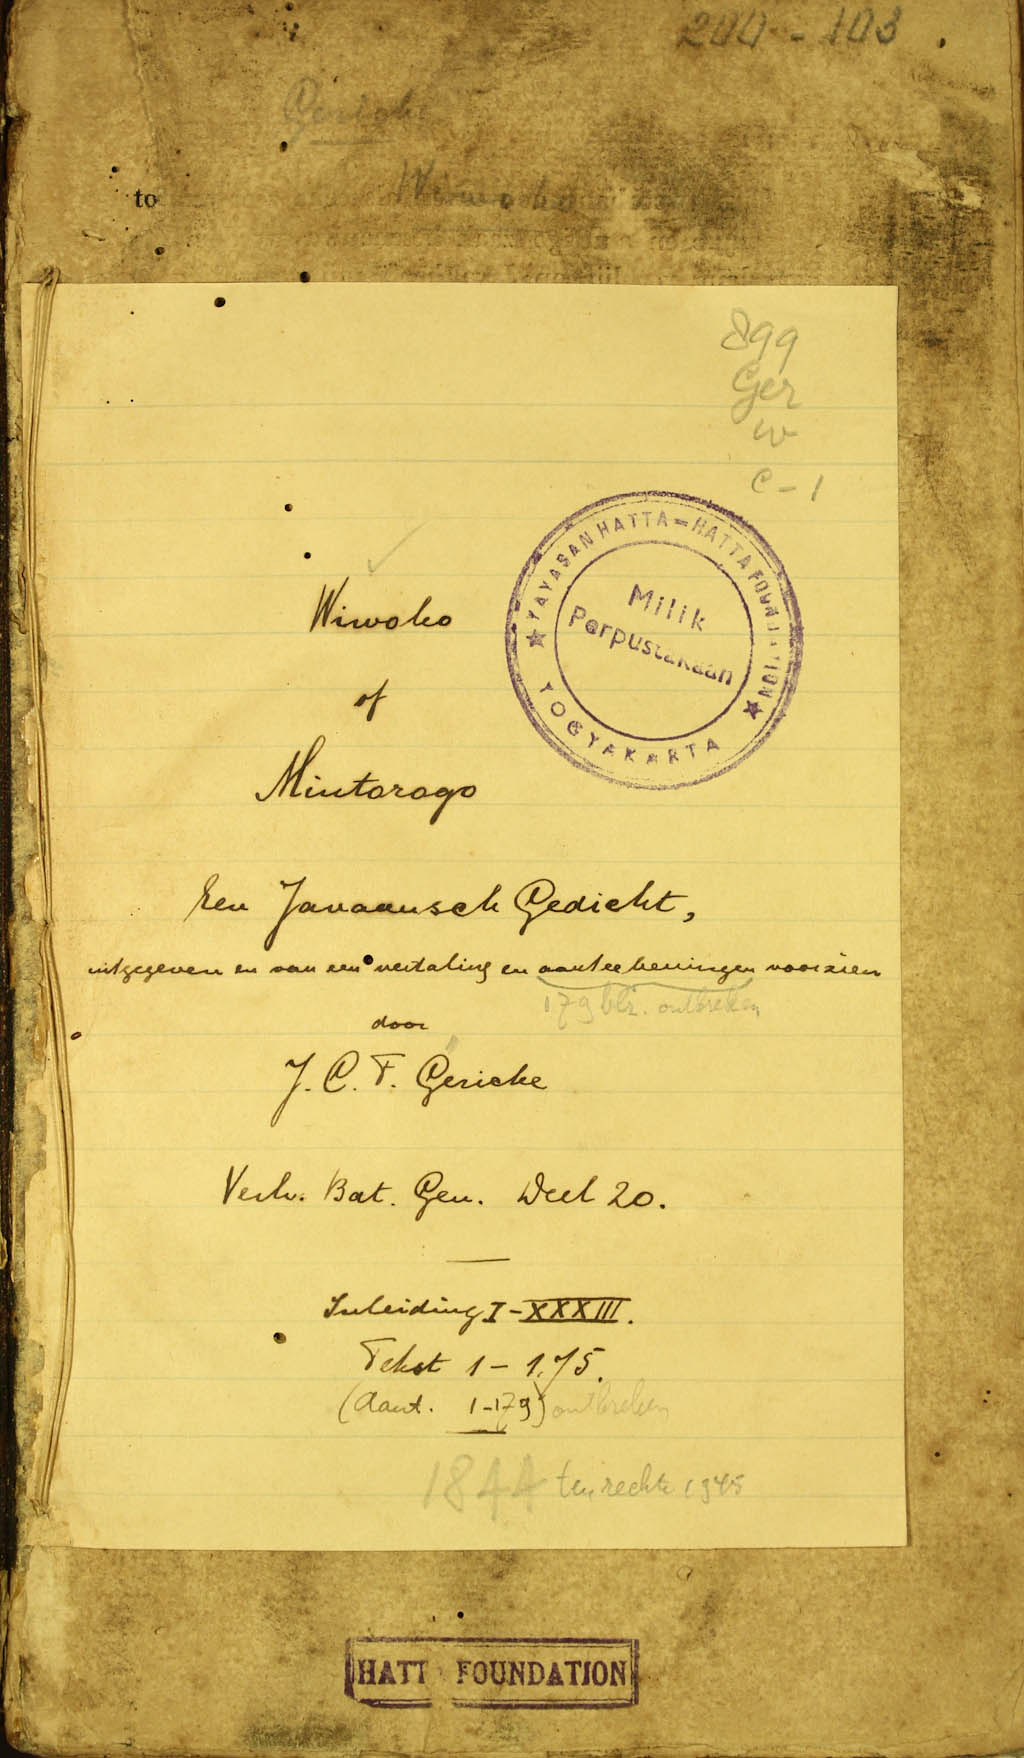 200 - 103
Gericke
Wiwoho
to
899
Ger
w
c - 1
YAYASAN HATTA = HATTA FOUNDATION
Milik
Perpustakaan
YOGYAKARTA
Wiwoho
of
Mintorogo
Een Javaansch Gedicht,
uitgegeven en van een vertaling en aanteekeningen voorzien
179 blz. ontbreken
door
J. C. F. Gericke
Verh. Bat. Gen. Deel 20.
Inleiding I - XXXIII.
Tekst 1 - 175.
(Aant. 1-179) ontbreken
1844
HATT FOUNDATION